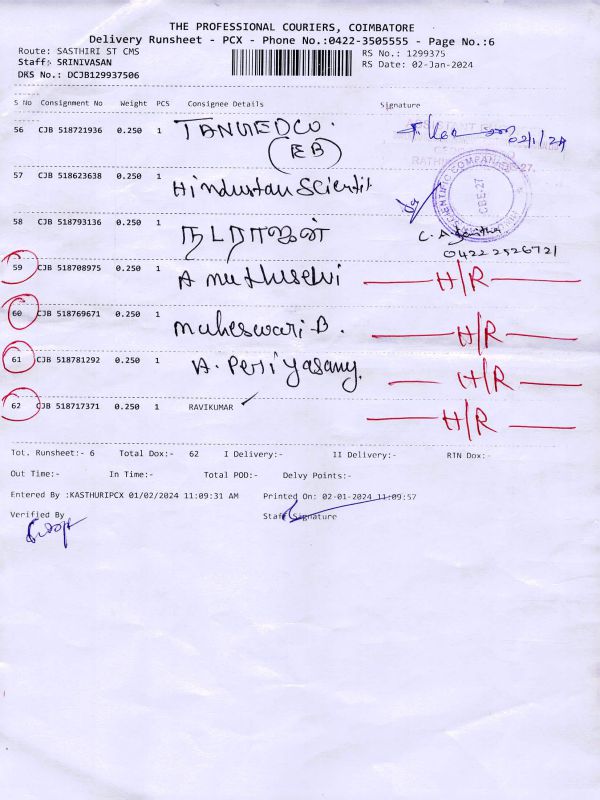 THE PROFESSIONAL COURIERS, COIMBATORE
Delivery Runsheet - PCX - Phone No.:0422-3505555 - Page No.:6
Route: SASTHIRI ST CMS RS No.: 1299375
Staff: SRINIVASAN RS Date: 02-Jan-2024
DRS No.: DCJB129937506
S No Consignment No Weight PCS Consignee Details Signature
56 CJB 518721936 0.250 1 TANGEDCO.
(EB) 02/1/24
57 CJB 518623638 0.250 1 Hindustan Scientif
SCIENTIFIC COMPANY
CBE-27
58 CJB 518793136 0.250 1 நடராஜன்
04222526721
59 CJB 518708975 0.250 1 A muthuselvi H/R
60 CJB 518769671 0.250 1 Maheswari-B. H/R
61 CJB 518781292 0.250 1 A. Periyasamy. H/R
62 CJB 518717371 0.250 1 RAVIKUMAR H/R
Tot. Runsheet:- 6 Total Dox:- 62 I Delivery:- II Delivery:- RTN Dox:-
Out Time:- In Time:- Total POD:- Delvy Points:-
Entered By :KASTHURIPCX 01/02/2024 11:09:31 AM Printed On: 02-01-2024 11:09:57
Verified By Staff Signature